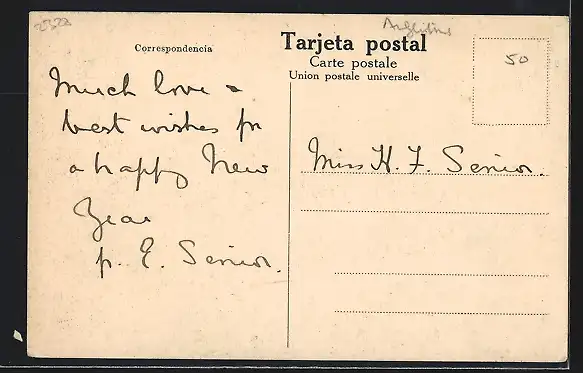 2328
Argentina
Correspondencia
Tarjeta postal
Carte postale
Union postale universelle
50
Much love &
best wishes for
a happy New
Year
E. Senior.
Miss H. F. Senior.